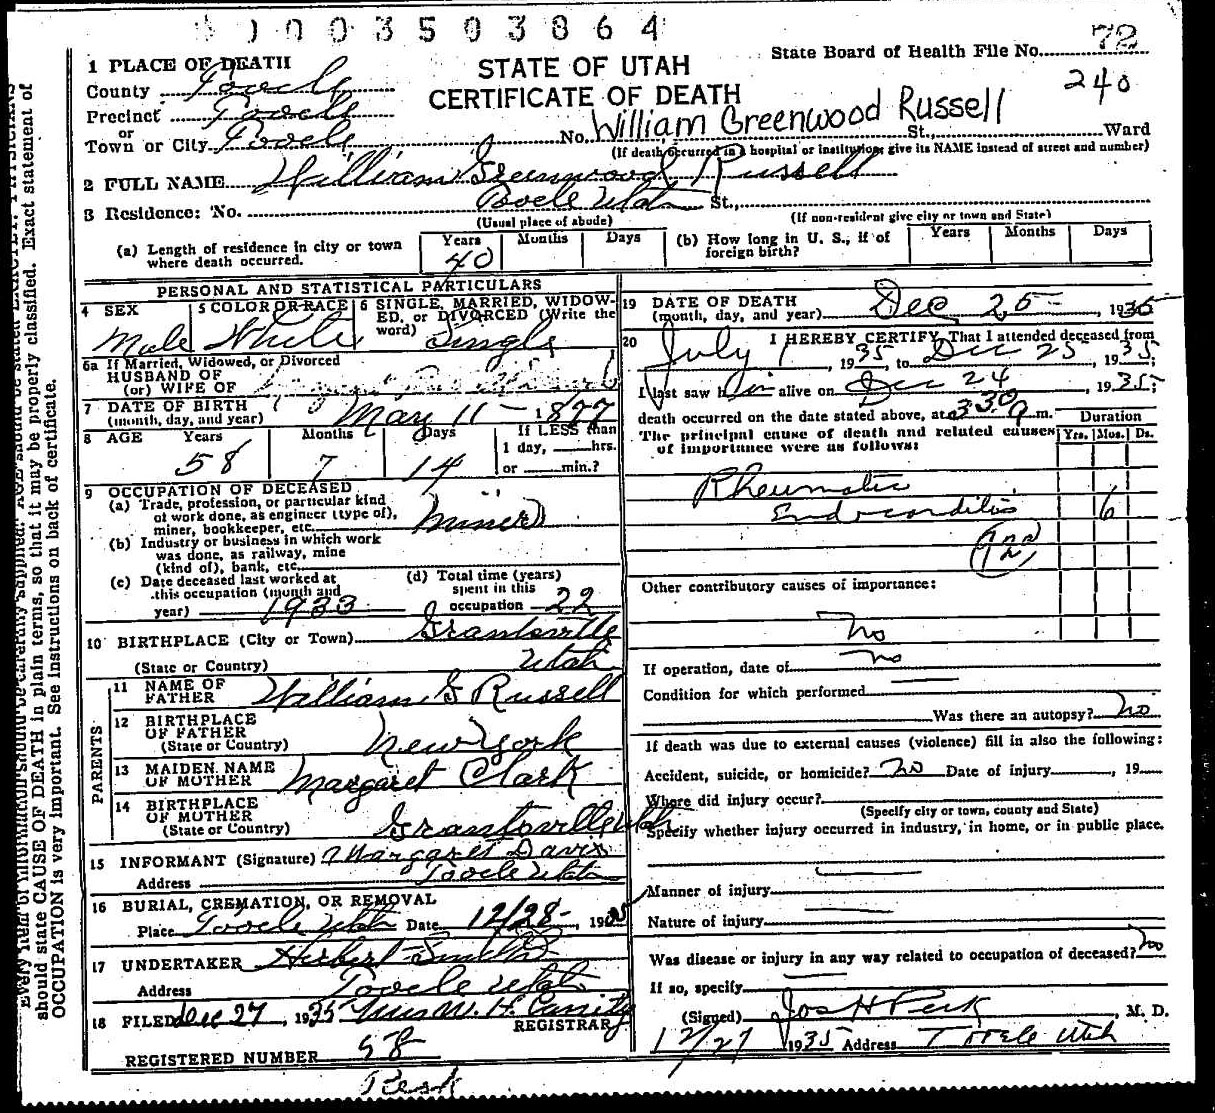 1003503864
State Board of Health File No. 72
240
STATE OF UTAH
CERTIFICATE OF DEATH
1 PLACE OF DEATH
County Tooele
Precinct Tooele
or
Town or City Tooele No. William Greenwood Russell St., Ward
(If death occurred in a hospital or institution, give its NAME instead of street and number)
2 FULL NAME William Greenwood Russell
3 Residence: No. Tooele Utah St.,
(Usual place of abode) (If non-resident give city or town and State)
(a) Length of residence in city or town where death occurred. Years 40 Months Days
(b) How long in U. S., if of foreign birth? Years Months Days
PERSONAL AND STATISTICAL PARTICULARS
4 SEX Male
5 COLOR OR RACE White
6 SINGLE, MARRIED, WIDOWED, or DIVORCED (Write the word) Single
6a If Married, Widowed, or Divorced
HUSBAND OF
(or) WIFE OF
7 DATE OF BIRTH (month, day, and year) May 11 - 1877
8 AGE Years 58 Months 7 Days 14 If LESS than 1 day, hrs. or min.?
9 OCCUPATION OF DECEASED
(a) Trade, profession, or particular kind of work done, as engineer (type of), miner, bookkeeper, etc. Miner
(b) Industry or business in which work was done, as railway, mine (kind of), bank, etc.
(c) Date deceased last worked at this occupation (month and year) 1933
(d) Total time (years) spent in this occupation 22
10 BIRTHPLACE (City or Town) Grantsville
(State or Country) Utah
PARENTS
11 NAME OF FATHER William G Russell
12 BIRTHPLACE OF FATHER (State or Country) New York
13 MAIDEN NAME OF MOTHER Margaret Clark
14 BIRTHPLACE OF MOTHER (State or Country) Grantsville Utah
15 INFORMANT (Signature) Margaret Davis
Address Tooele Utah
16 BURIAL, CREMATION, OR REMOVAL
Place Tooele Utah Date 12/28-, 1935
17 UNDERTAKER Herbert Smith
Address Tooele Utah
18 FILED Dec 27, 1935 Mrs W. H. Cassity
REGISTRAR
REGISTERED NUMBER 58
19 DATE OF DEATH (month, day, and year) Dec 25-, 1935
20 I HEREBY CERTIFY, That I attended deceased from
July 1, 1935, to Dec 25, 1935;
I last saw him alive on Dec 24, 1935;
death occurred on the date stated above, at 3:30 a m. Duration
The principal cause of death and related causes of importance were as follows: Yrs. Mos. Ds.
Rheumatic
Endocarditis 6
Other contributory causes of importance:
No
If operation, date of no
Condition for which performed
Was there an autopsy? no
If death was due to external causes (violence) fill in also the following:
Accident, suicide, or homicide? no Date of injury, 19
Where did injury occur?
(Specify city or town, county and State)
Specify whether injury occurred in industry, in home, or in public place.
Manner of injury
Nature of injury
Was disease or injury in any way related to occupation of deceased? no
If so, specify
(Signed) Jos H Peck, M. D.
12/27 1935 Address Tooele Utah
should state CAUSE OF DEATH in plain terms, so that it may be properly classified. Exact statement of
OCCUPATION is very important. See instructions on back of certificate.